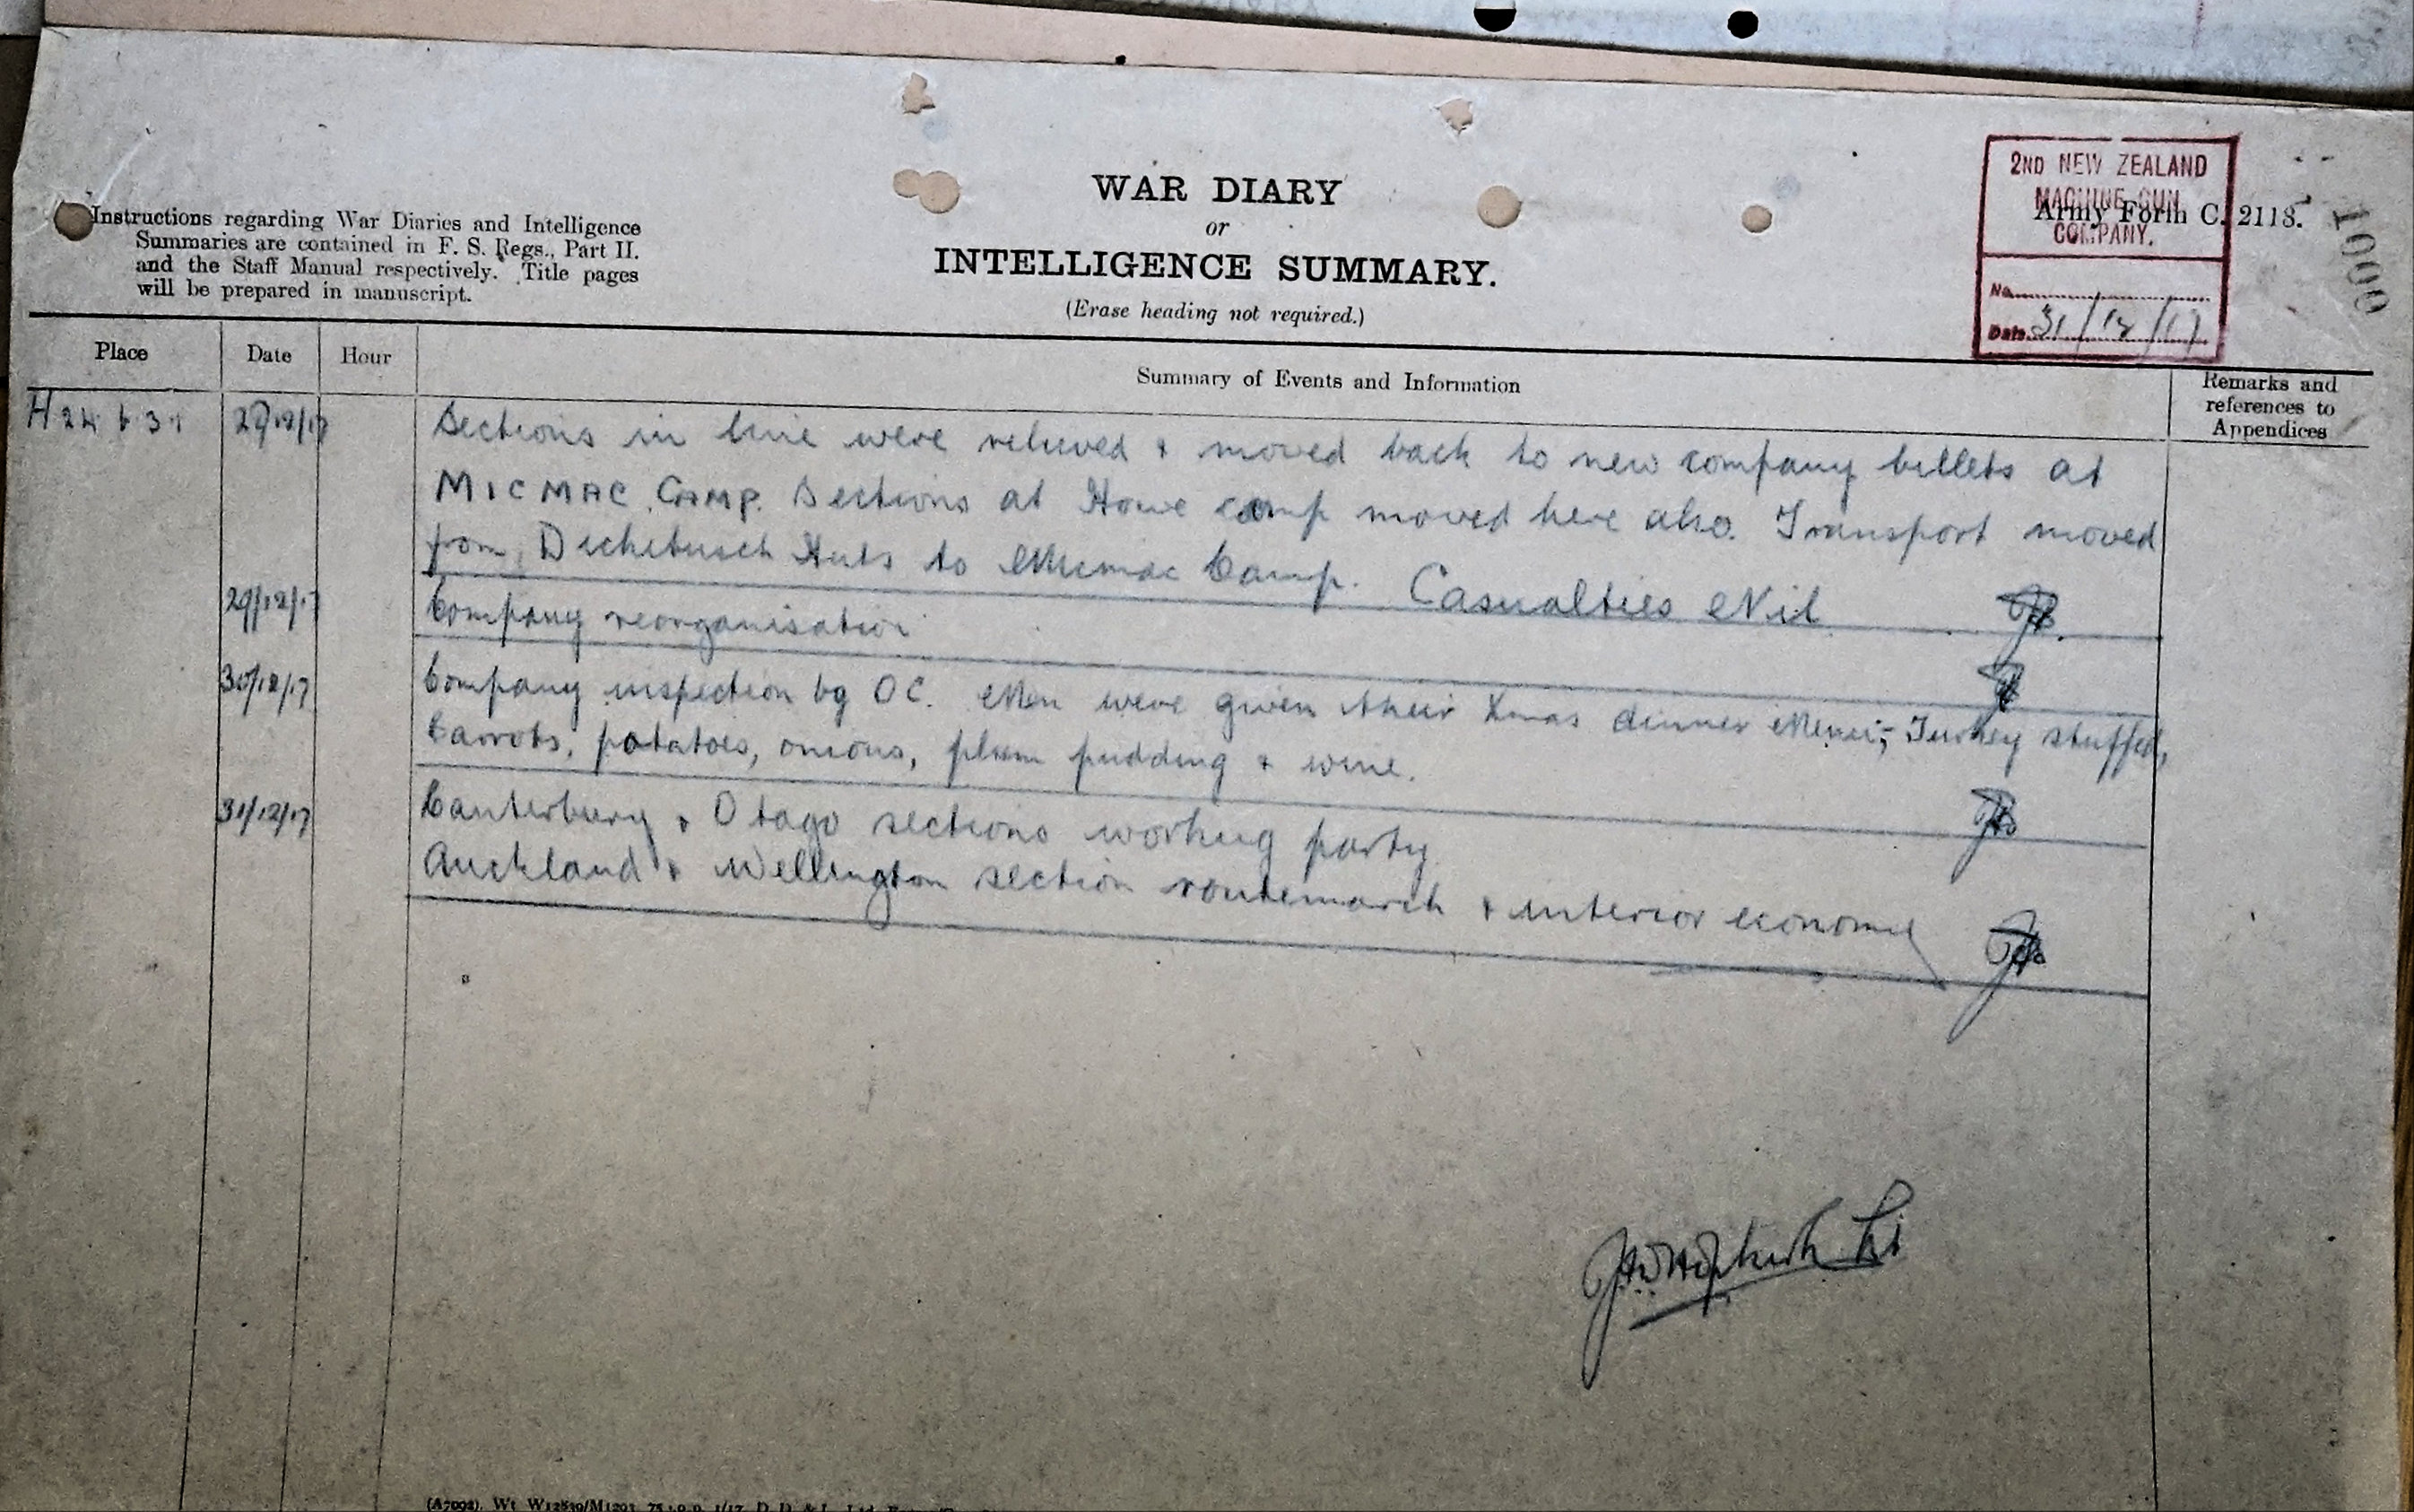 WAR DIARY
or
INTELLIGENCE SUMMARY.
(Erase heading not required.)
Instructions regarding War Diaries and Intelligence
Summaries are contained in F. S. Regs., Part II.
and the Staff Manual respectively. Title pages
will be prepared in manuscript.
2ND NEW ZEALAND
MACHINE GUN
COMPANY.
No.
Date 31/12/17
Army Form C. 2118.
1000
Place Date Hour Summary of Events and Information Remarks and
references to
Appendices
H24 Sections in line were relieved & moved back to new company billets at
MICMAC CAMP. Sections at Howe camp moved here also. Transport moved
from Dickebusch Huts to Micmac Camp. Casualties Nil
29/12/17 Company reorganisation
30/12/17 Company inspection by OC. Men were given their Xmas dinner Menu;- Turkey stuffed,
carrots, potatoes, onions, plum pudding & wine.
31/12/17 Canterbury & Otago sections working party
Auckland & Wellington section routemarch & interior economy
Lt